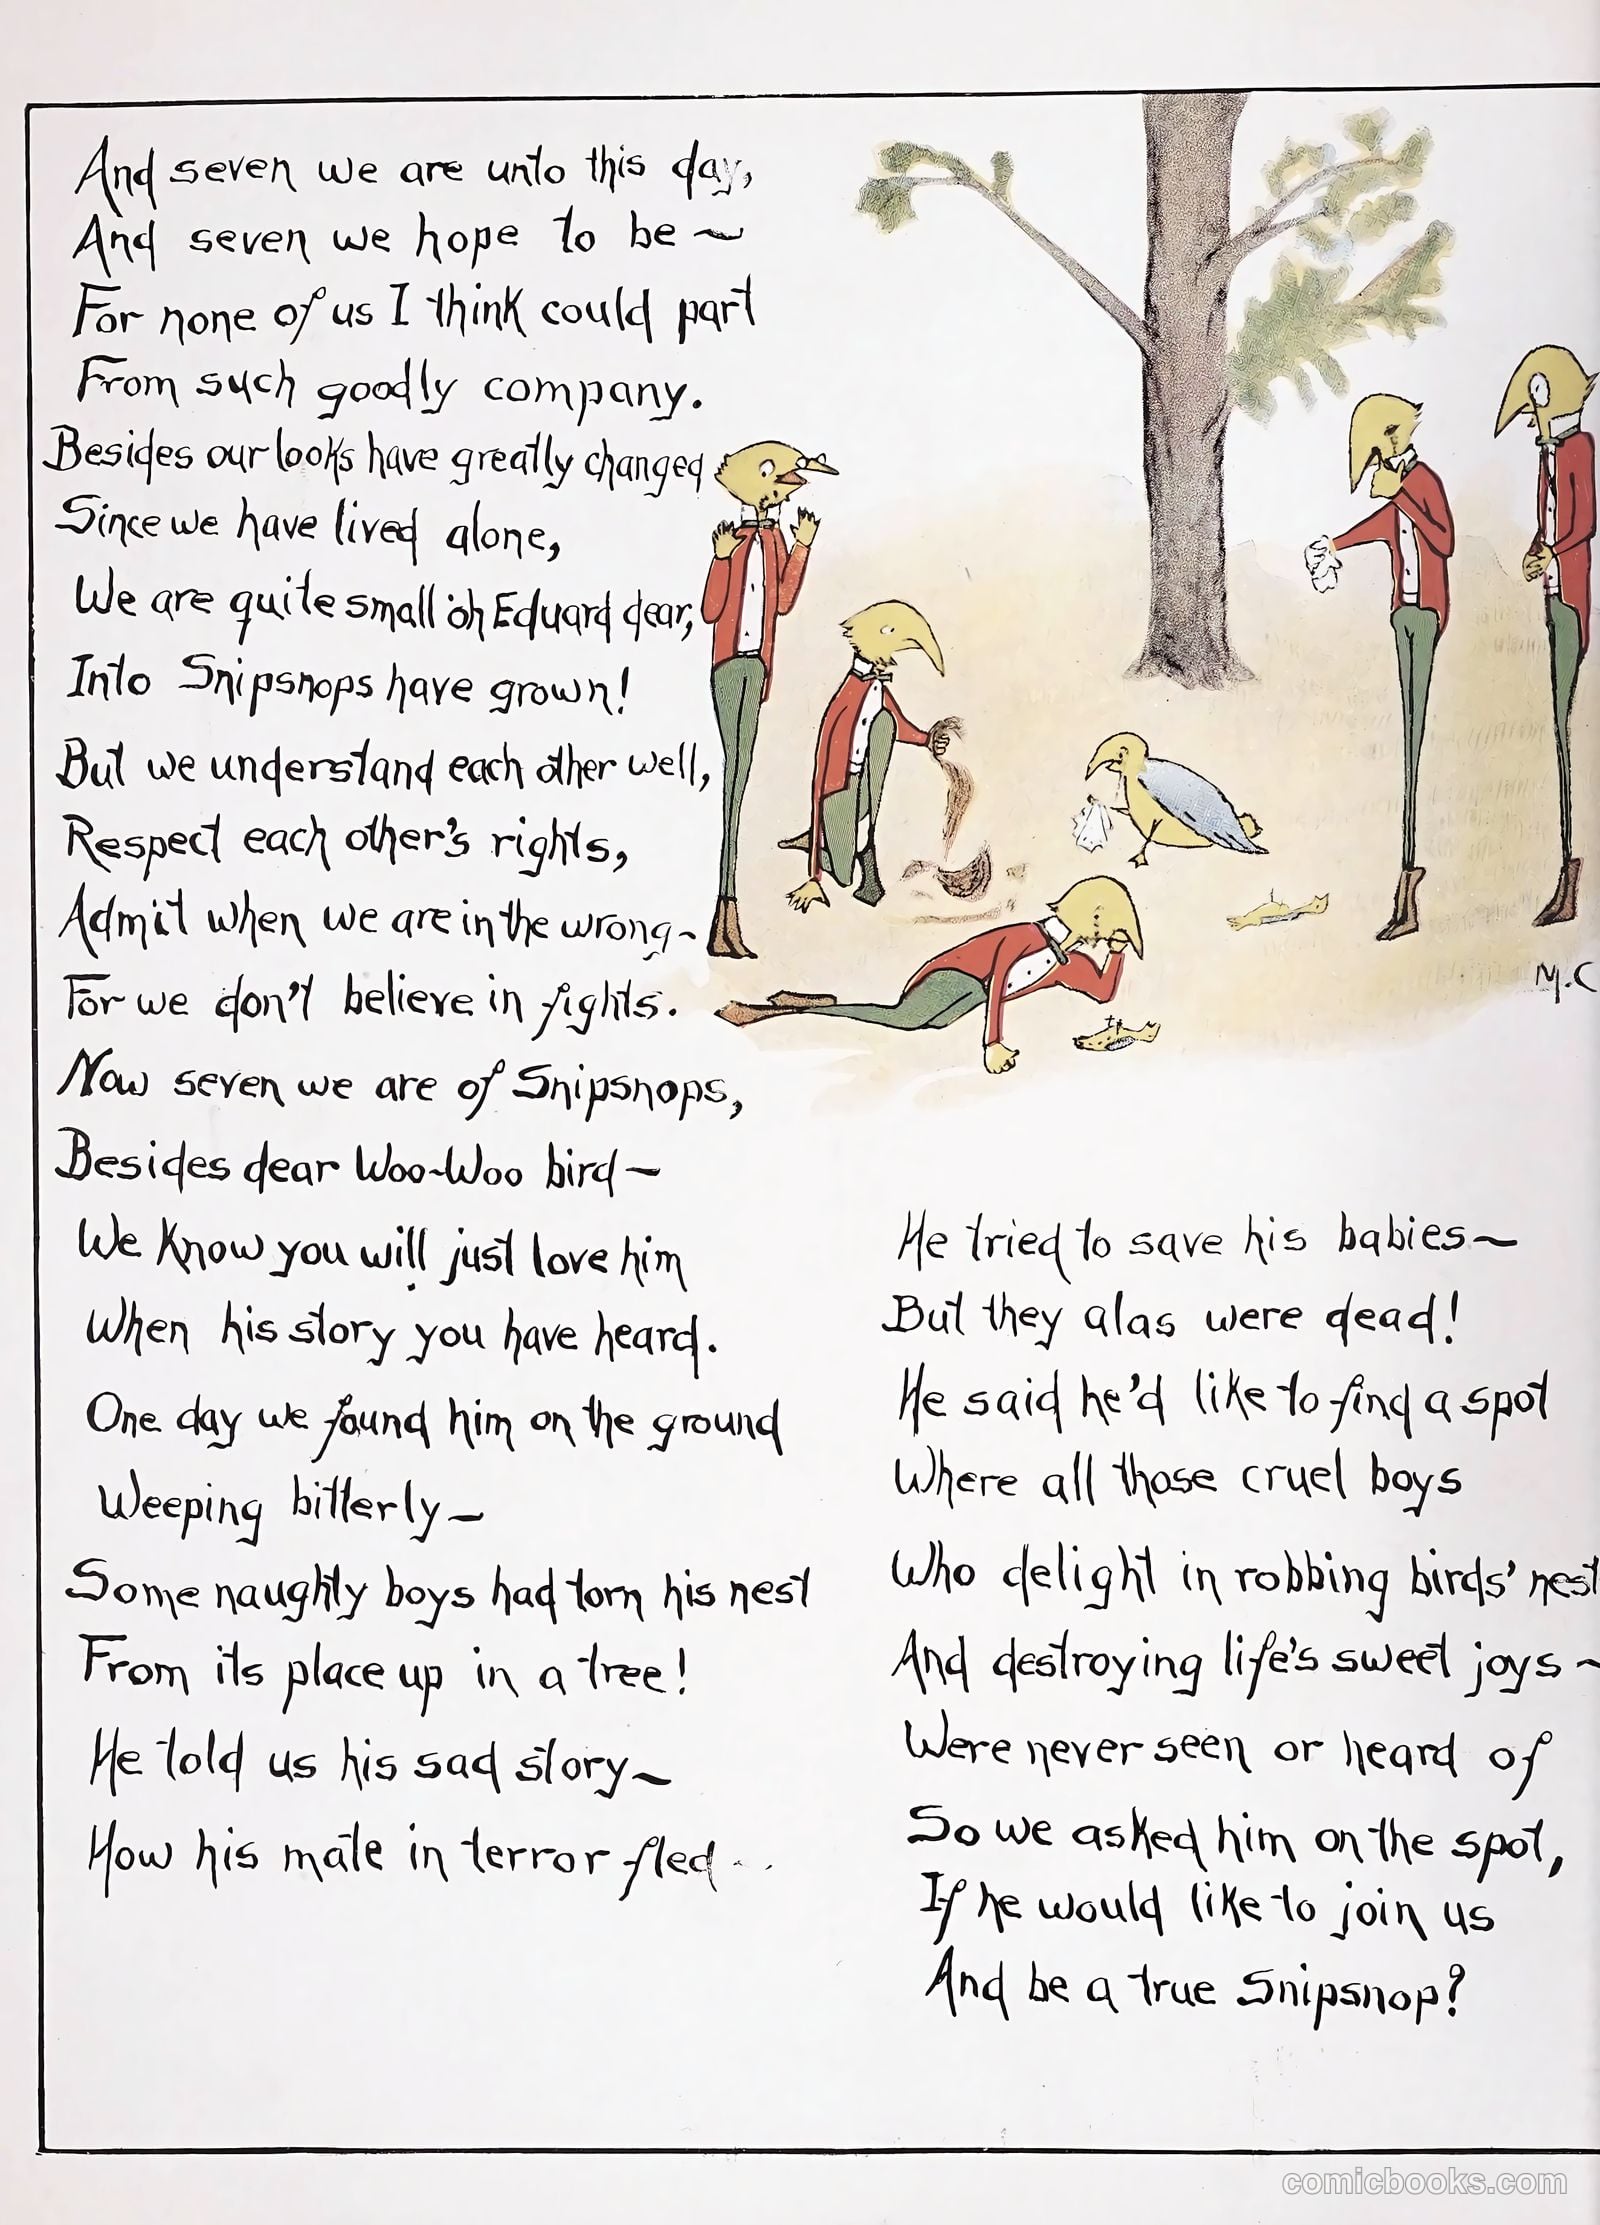 And seven we are unto this day,
And seven we hope to be ~
For none of us I think could part
From such goodly company.
Besides our looks have greatly changed
Since we have lived alone,
We are quite small oh Eduard dear,
Into Snipsnops have grown!
But we understand each other well,
Respect each other's rights,
Admit when we are in the wrong~
For we don't believe in fights.
Now seven we are of Snipsnops,
Besides dear Woo-Woo bird~
We know you will just love him
When his story you have heard.
One day we found him on the ground
Weeping bitterly~
Some naughty boys had torn his nest
From its place up in a tree!
He told us his sad story~
How his mate in terror fled
M.C
He tried to save his babies~
But they alas were dead!
He said he'd like to find a spot
Where all those cruel boys
Who delight in robbing birds' nest
And destroying life's sweet joys ~
Were never seen or heard of
So we asked him on the spot,
If he would like to join us
And be a true Snipsnop?
comicbooks.com